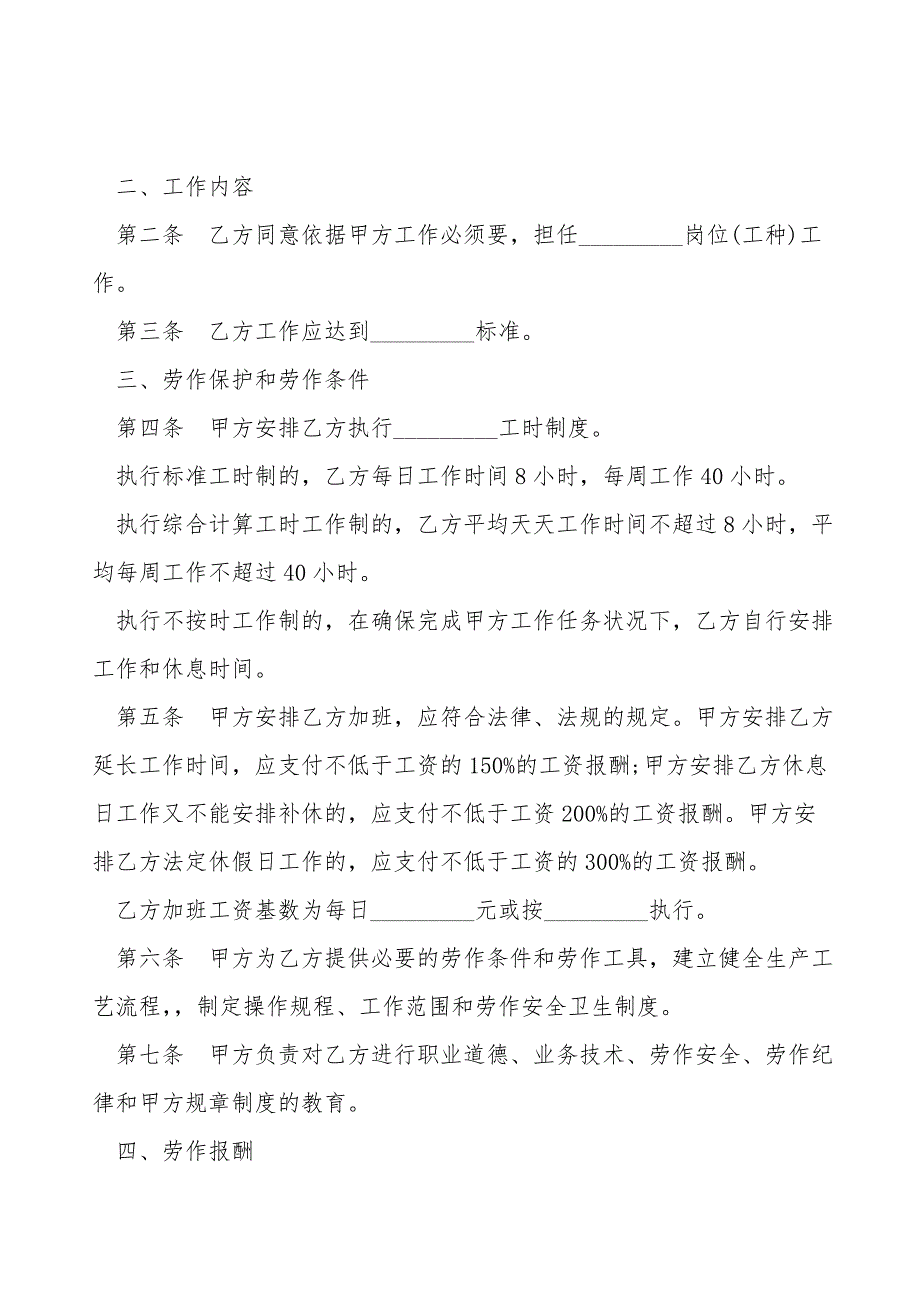 二、工作内容
第二条　乙方同意依据甲方工作必须要，担任_________岗位(工种)工
作。
第三条　乙方工作应达到_________标准。
三、劳作保护和劳作条件
第四条　甲方安排乙方执行_________工时制度。
执行标准工时制的，乙方每日工作时间8小时，每周工作40小时。
执行综合计算工时工作制的，乙方平均天天工作时间不超过8小时，平
均每周工作不超过40小时。
执行不按时工作制的，在确保完成甲方工作任务状况下，乙方自行安排
工作和休息时间。
第五条　甲方安排乙方加班，应符合法律、法规的规定。甲方安排乙方
延长工作时间，应支付不低于工资的150%的工资报酬;甲方安排乙方休息
日工作又不能安排补休的，应支付不低于工资200%的工资报酬。甲方安
排乙方法定休假日工作的，应支付不低于工资的300%的工资报酬。
乙方加班工资基数为每日_________元或按_________执行。
第六条　甲方为乙方提供必要的劳作条件和劳作工具，建立健全生产工
艺流程，，制定操作规程、工作范围和劳作安全卫生制度。
第七条　甲方负责对乙方进行职业道德、业务技术、劳作安全、劳作纪
律和甲方规章制度的教育。
四、劳作报酬